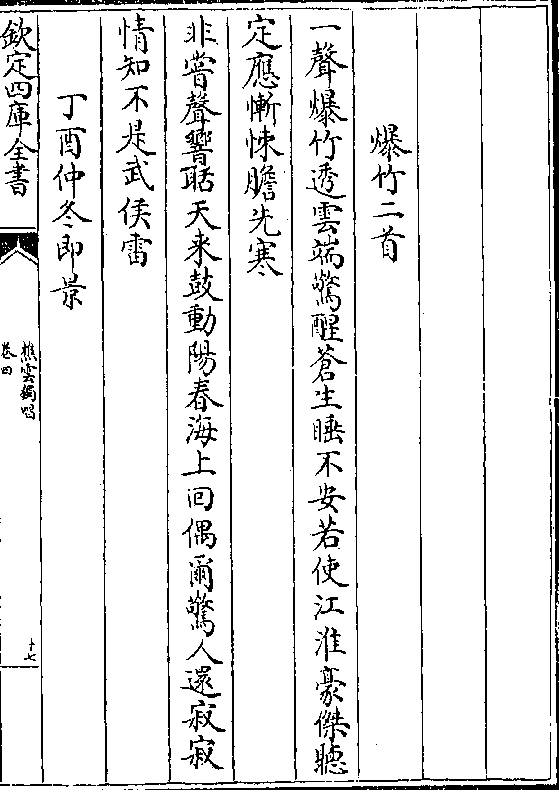 爆竹二首
一聲爆竹透雲端驚醒蒼生睡不安若使江淮豪傑聽
定應慚悚膽先寒
非嘗聲響聒天來鼓動陽春海上回偶爾驚人還寂寂
情知不是武侯雷
丁酉仲冬即景
欽定四庫全書
樵雲獨唱
卷四
十七